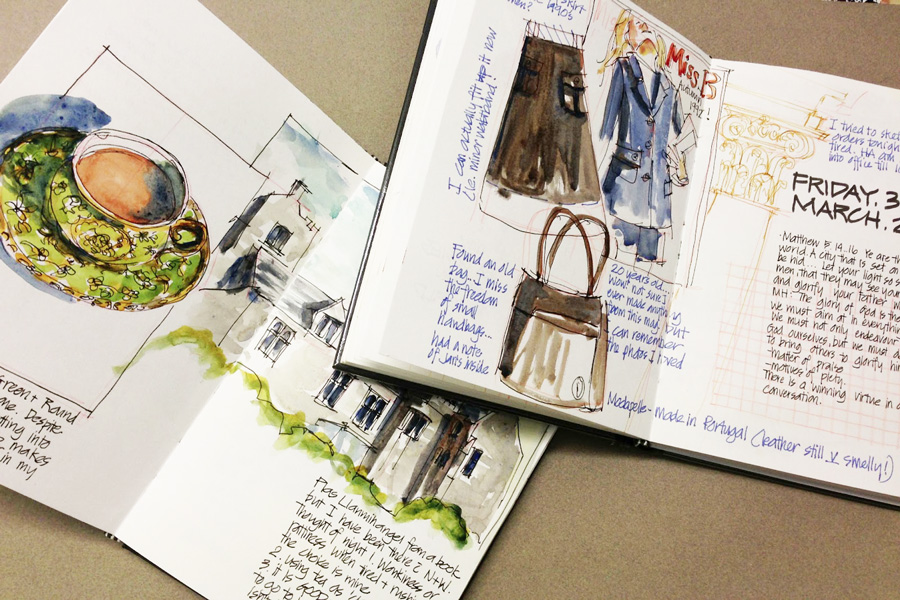 Green + Round
me. Despite
ating into
2. makes
in my
Plas Llanmihangel from a book
but I have been there 2 N+W.
Thought of night!. Wonkiness or
rattiness when tired + rushi
the choice is mine
2. using tea as
3. it is GOOD
to go to
skirt
when? 1990's
I can actually fit it now
(ie. minor waistband!
Miss. B
Autumn
1992!
Found an old
bag... I miss
the freedom
of small
handbags...
had a note
of yarns inside
20 years old...
wont not sure I
ever made anything
from this mag. but
I can remember
the photos I loved
Modapelle - made in Portugal (leather still V smelly!)
I tried to sket
orders tonigh
tired. HA am
into office till
FRIDAY. 3
MARCH. 2
Matthew 5:14.16 Ye are th
world. A city that is set on
be hid... Let your light so s
men, that they may see your
and glorify your Father w
MH: The glory of God is the
we must aim at in everythin
We must not only endeavour
God ourselves, but we must d
to bring others to glorify hi
matter of praise
motives of piety.
There is a winning virtue in a
conversation.